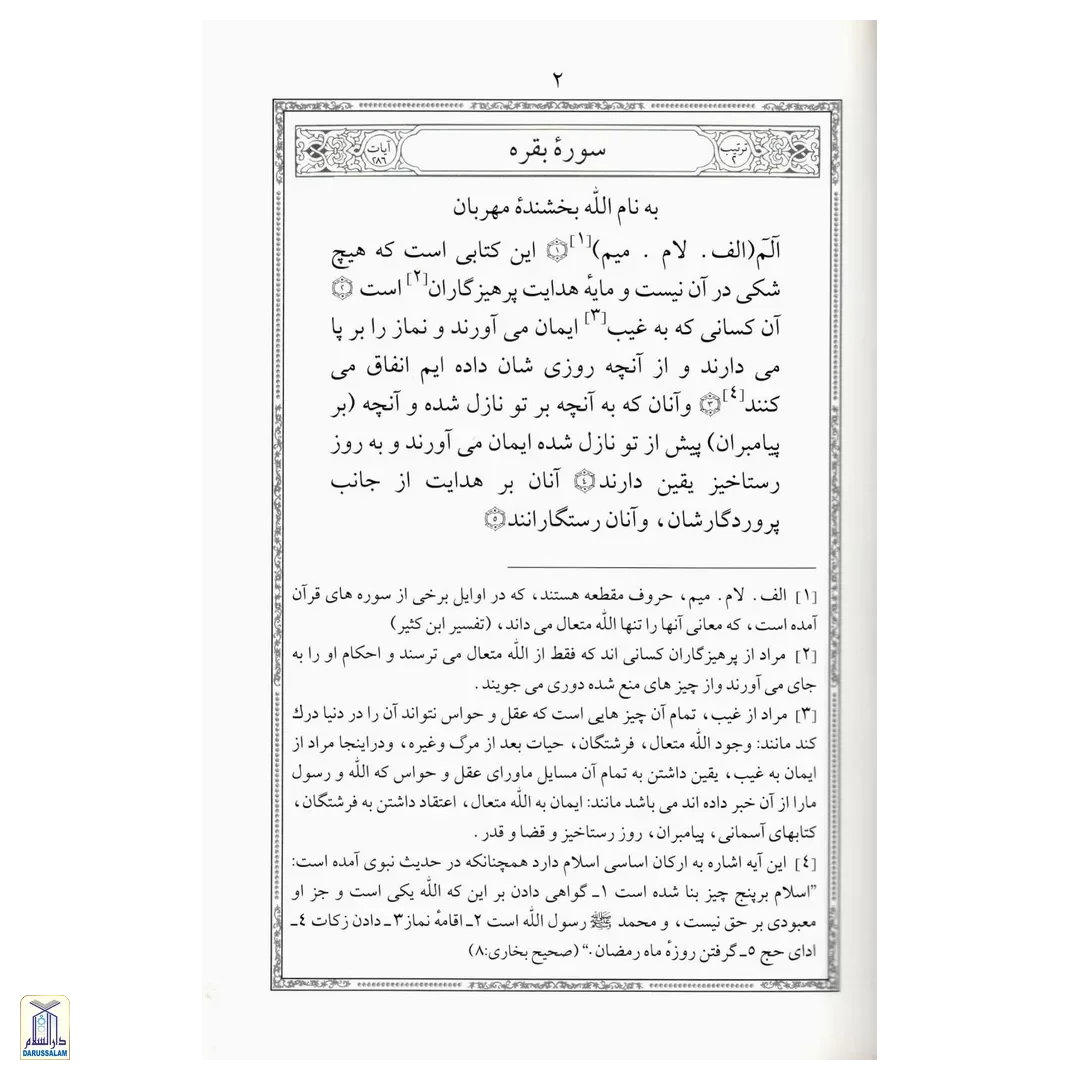 ٢
ترتیب
٢
سورهٔ بقره
آیات
٢٨٦
به نام الله بخشندهٔ مهربان
آلٓمٓ(الف. لام . میم)[١]﴿١﴾ این کتابی است که هیچ
شکی در آن نیست و مایهٔ هدایت پرهیزگاران[٢] است ﴿٢﴾
آن کسانی که به غیب[٣] ایمان می آورند و نماز را بر پا
می دارند و از آنچه روزی شان داده ایم انفاق می
کنند[٤]﴿٣﴾ وآنان که به آنچه بر تو نازل شده و آنچه (بر
پیامبران) پیش از تو نازل شده ایمان می آورند و به روز
رستاخیز یقین دارند﴿٤﴾ آنان بر هدایت از جانب
پروردگارشان، وآنان رستگارانند﴿٥﴾
[١] الف. لام. میم، حروف مقطعه هستند، که در اوایل برخی از سوره های قرآن
آمده است، که معانی آنها را تنها الله متعال می داند، (تفسیر ابن کثیر)
[٢] مراد از پرهیزگاران کسانی اند که فقط از الله متعال می ترسند و احکام او را به
جای می آورند واز چیز های منع شده دوری می جویند.
[٣] مراد از غیب، تمام آن چیز هایی است که عقل و حواس نتواند آن را در دنیا درك
کند مانند: وجود الله متعال، فرشتگان، حیات بعد از مرگ وغیره، ودراینجا مراد از
ایمان به غیب، یقین داشتن به تمام آن مسایل ماورای عقل و حواس که الله و رسول
مارا از آن خبر داده اند می باشد مانند: ایمان به الله متعال، اعتقاد داشتن به فرشتگان،
کتابهای آسمانی، پیامبران، روز رستاخیز و قضا و قدر.
[٤] این آیه اشاره به ارکان اساسی اسلام دارد همچنانکه در حدیث نبوی آمده است:
"اسلام برپنج چیز بنا شده است ١ـ گواهی دادن بر این که الله یکی است و جز او
معبودی بر حق نیست، و محمد ﷺ رسول الله است ٢ـ اقامهٔ نماز٣ـ دادن زکات ٤ـ
ادای حج ٥ـ گرفتن روزهٔ ماه رمضان." (صحیح بخاری:٨)
دارالسلام
DARUSSALAM